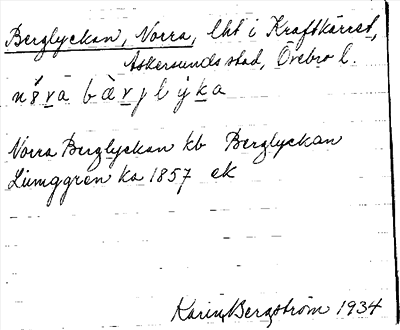 Berglyckan, Norra, lht i Kraftkärret,
Askersunds stad, Örebro l.
Norra Berglyckan kb Berglyckan
Ljunggren ka 1857 ek
Karin Bergström 1934